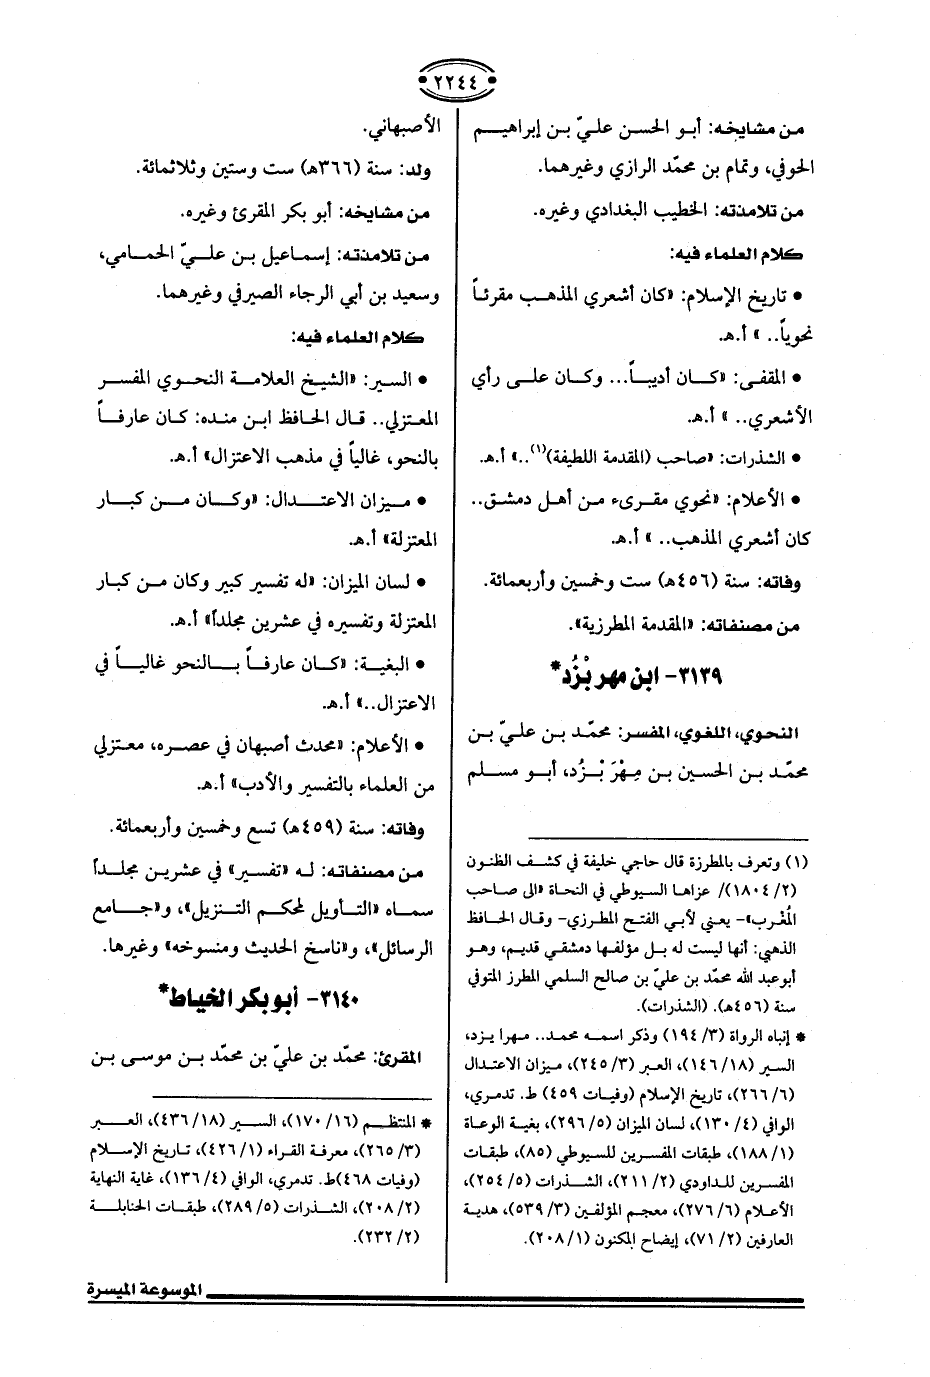 ٢٢٤٤
من مشايخه: أبو الحسن عليّ بن إبراهيم
الحوفي، وتمام بن محمّد الرازي وغيرهما.
من تلامذته: الخطيب البغدادي وغيره.
كلام العلماء فيه:
• تاريخ الإسلام: «كان أشعري المذهب مقرئاً
نحوياً.. » أ.هـ.
• المقفى: «كان أديباً... وكان على رأي
الأشعري.. » أ.هـ.
• الشذرات: «صاحب (المقدمة اللطيفة)(١)..» أ.هـ.
• الأعلام: «نحوي مقرىء من أهل دمشق..
كان أشعري المذهب.. » أ.هـ.
وفاته: سنة (٤٥٦هـ) ست وخمسين وأربعمائة.
من مصنفاته: «المقدمة المطرزية».
٣١٣٩- ابن مهر بْزُد*
النحوي، اللغوي، المفسر: محمّد بن عليّ بن
محمّد بن الحسين بن مِهْرَ بْزُد، أبو مسلم
(١) وتعرف بالمطرزة قال حاجي خليفة في كشف الظنون
(٢/ ١٨٠٤)/ عزاها السيوطي في النحاة «الى صاحب
المُغْرب»- يعني لأبي الفتح المطرزي- وقال الحافظ
الذهبي: أنها ليست له بل مؤلفها دمشقي قديم، وهو
أبوعبد الله محمّد بن عليّ بن صالح السلمي المطرز المتوفي
سنة (٤٥٦هـ). (الشذرات).
* إنباه الرواة (٣/ ١٩٤) وذكر اسمه محمد.. مهرا يزد،
السير (١٨/ ١٤٦)، العبر (٣/ ٢٤٥)، ميزان الاعتدال
(٦/ ٢٦٦)، تاريخ الإسلام (وفيات ٤٥٩) ط. تدمري،
الوافي (٤/ ١٣٠)، لسان الميزان (٥/ ٢٩٦)، بغية الوعاة
(١/ ١٨٨)، طبقات المفسرين للسيوطي (٨٥)، طبقات
المفسرين للداودي (٢/ ٢١١)، الشذرات (٥/ ٢٥٤)،
الأعلام (٦/ ٢٧٦)، معجم المؤلفين (٣/ ٥٣٩)، هدية
العارفين (٢/ ٧١)، إيضاح المكنون (١/ ٢٠٨).
الأصبهاني.
ولد: سنة (٣٦٦هـ) ست وستين وثلاثمائة.
من مشايخه: أبو بكر المقرئ وغيره.
من تلامذته: إسماعيل بن عليّ الحمامي،
وسعيد بن أبي الرجاء الصيرفي وغيرهما.
كلام العلماء فيه:
• السير: «الشيخ العلامة النحوي المفسر
المعتزلي.. قال الحافظ ابن منده: كان عارفاً
بالنحو، غالياً في مذهب الاعتزال» أ.هـ.
• ميزان الاعتدال: «وكان من كبار
المعتزلة» أ.هـ.
• لسان الميزان: «له تفسير كبير وكان من كبار
المعتزلة وتفسيره في عشرين مجلداً» أ.هـ.
• البغية: «كان عارفاً بالنحو غالياً في
الاعتزال..» أ.هـ.
• الأعلام: «محدث أصبهان في عصره، معتزلي
من العلماء بالتفسير والأدب» أ.هـ.
وفاته: سنة (٤٥٩هـ) تسع وخمسين وأربعمائة.
من مصنفاته: له «تفسير» في عشرين مجلداً
سماه «التأويل لمحكم التنزيل»، و«جامع
الرسائل»، و«ناسخ الحديث ومنسوخه» وغيرها.
٣١٤٠- أبو بكر الخياط*
المقرئ: محمّد بن عليّ بن محمّد بن موسى بن
* المنتظم (١٦/ ١٧٠)، السير (١٨/ ٤٣٦)، العبر
(٣/ ٢٦٥)، معرفة القراء (١/ ٤٢٦)، تاريخ الإسلام
(وفيات ٤٦٨)ط. تدمري، الوافي (٤/ ١٣٦)، غاية النهاية
(٢/ ٢٠٨)، الشذرات (٥/ ٢٨٩)، طبقات الحنابلة
(٢/ ٢٣٢).
الموسوعة الميسرة